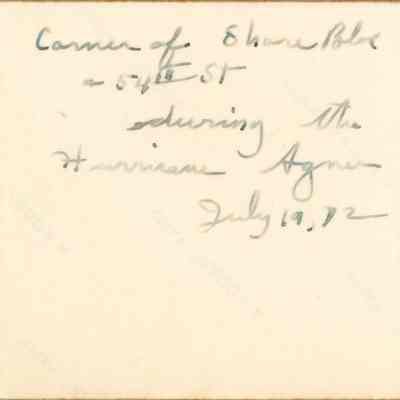 Corner of Shore Blvd
a 54th St
during the
Hurricane Agnes
July 19, 72